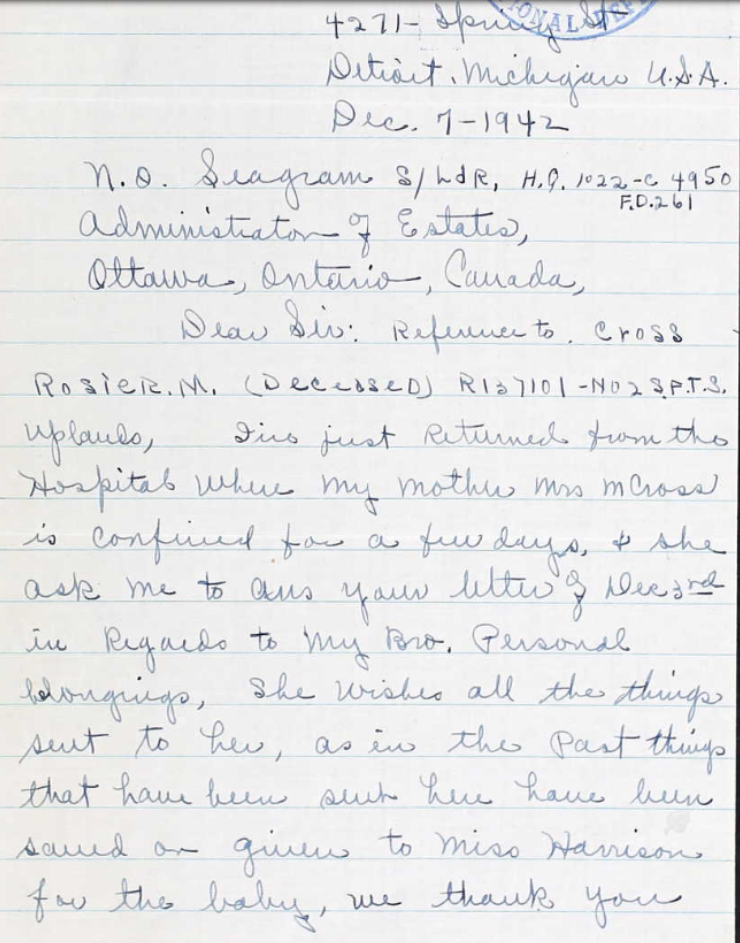 4271- Spring St
ONAL DEF
Detroit. Michigan U.S.A.
Dec. 7-1942
N.O. Seagram S/LdR, H.Q. 1022-C 4950
F.D.261
Administrator of Estates,
Ottawa, Ontario, Canada,
Dear Sir: Reference to. Cross
Rosier.M. (Deceased) R137101-No2 S.F.T.S.
Uplands, I've just returned from the
Hospital where my mother Mrs M Cross
is confined for a few days, & she
ask me to ans your letter of Dec 3rd
in Regards to my Bro. Personal
belongings, She wishes all the things
sent to her, as in the Past things
that have been sent here have been
saved or given to Miss Harrison
for the baby, we thank you